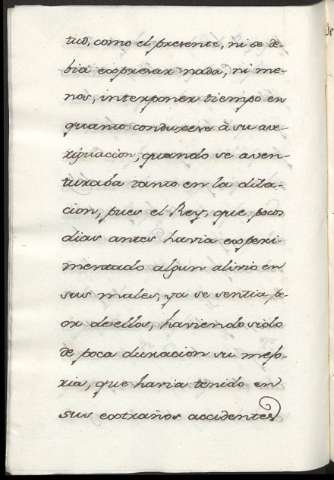 tud, como el presente, ni se de-
bia expresar nada, ni me-
nos, interponer tiempo en
quanto conduxese à su ave-
riguacion, quando se aven-
turaba tanto en la dila-
cion, pues el Rey, que pocos
dias antes havia experi-
mentado algun alivio en
sus males, ya se sentia pe-
or de ellos, haviendo sido
de poca duracion su mejo-
ria, que havia tenido en
sus extraños accidentes